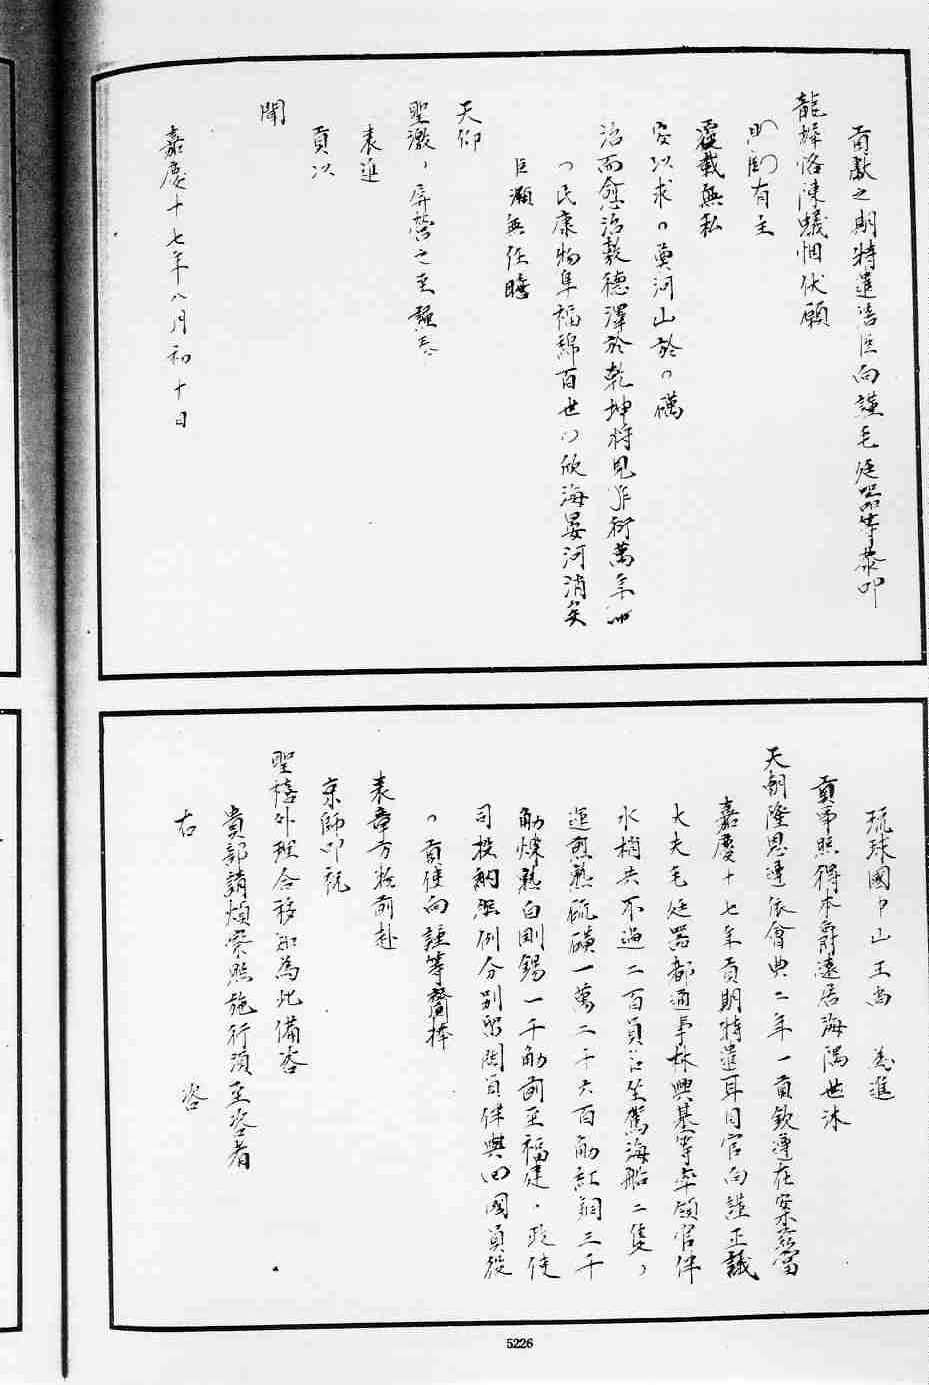 貢獻之期特遣陪臣向謹毛廷器等恭叩
龍墀恪陳蟻悃伏願
有主
覆載無私
安以求奠河山於礪
治而愈治敷德澤於乾坤將見年衍萬年
民康物阜福綿百世欣海晏河清矣
臣灝無任瞻
天仰
聖激屏營之至謹奏
表進
貢以
聞
嘉慶十七年八月初十日
琉球國中山王尚 為進
貢事照得本爵遠居海隅世沐
天朝隆恩遵依會典二年一貢欽遵在案茲當
嘉慶十七年貢期特遣耳目官向謹正議
大夫毛廷器都通事林興基等率領官伴
水梢共不過二百員名坐駕海船二隻
運煎熟硫磺一萬二千六百觔紅銅三千
觔煉熟白剛錫一千觔前至福建政使
司投納照例分別留閩員伴與回國員役
貢使向謹等齎捧
表章方物前赴
京師叩祝
聖禧外理合移知為此備咨
貴部請煩察照施行須至咨者
右 咨
5226